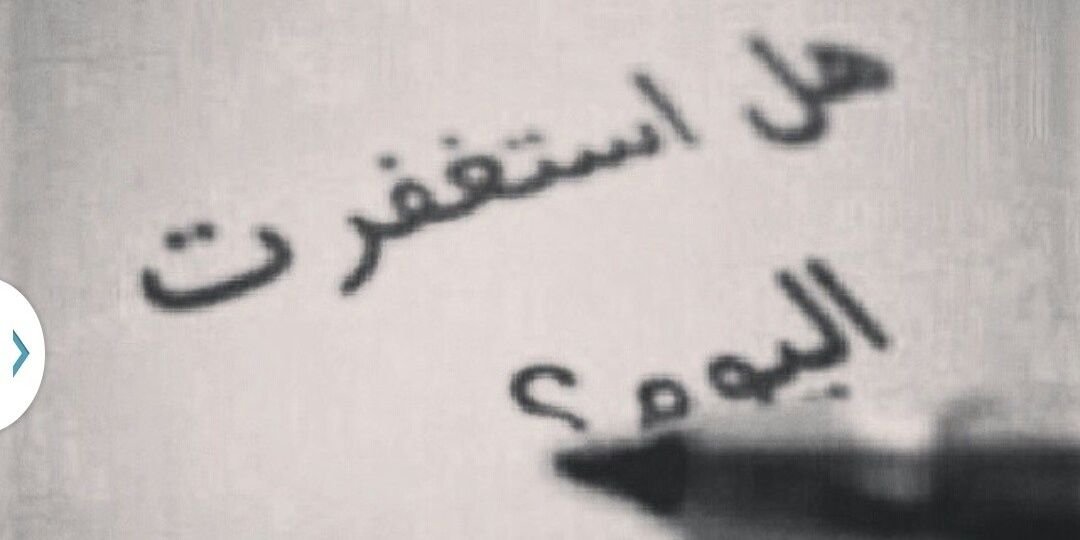 هل استغفرت
اليوم؟